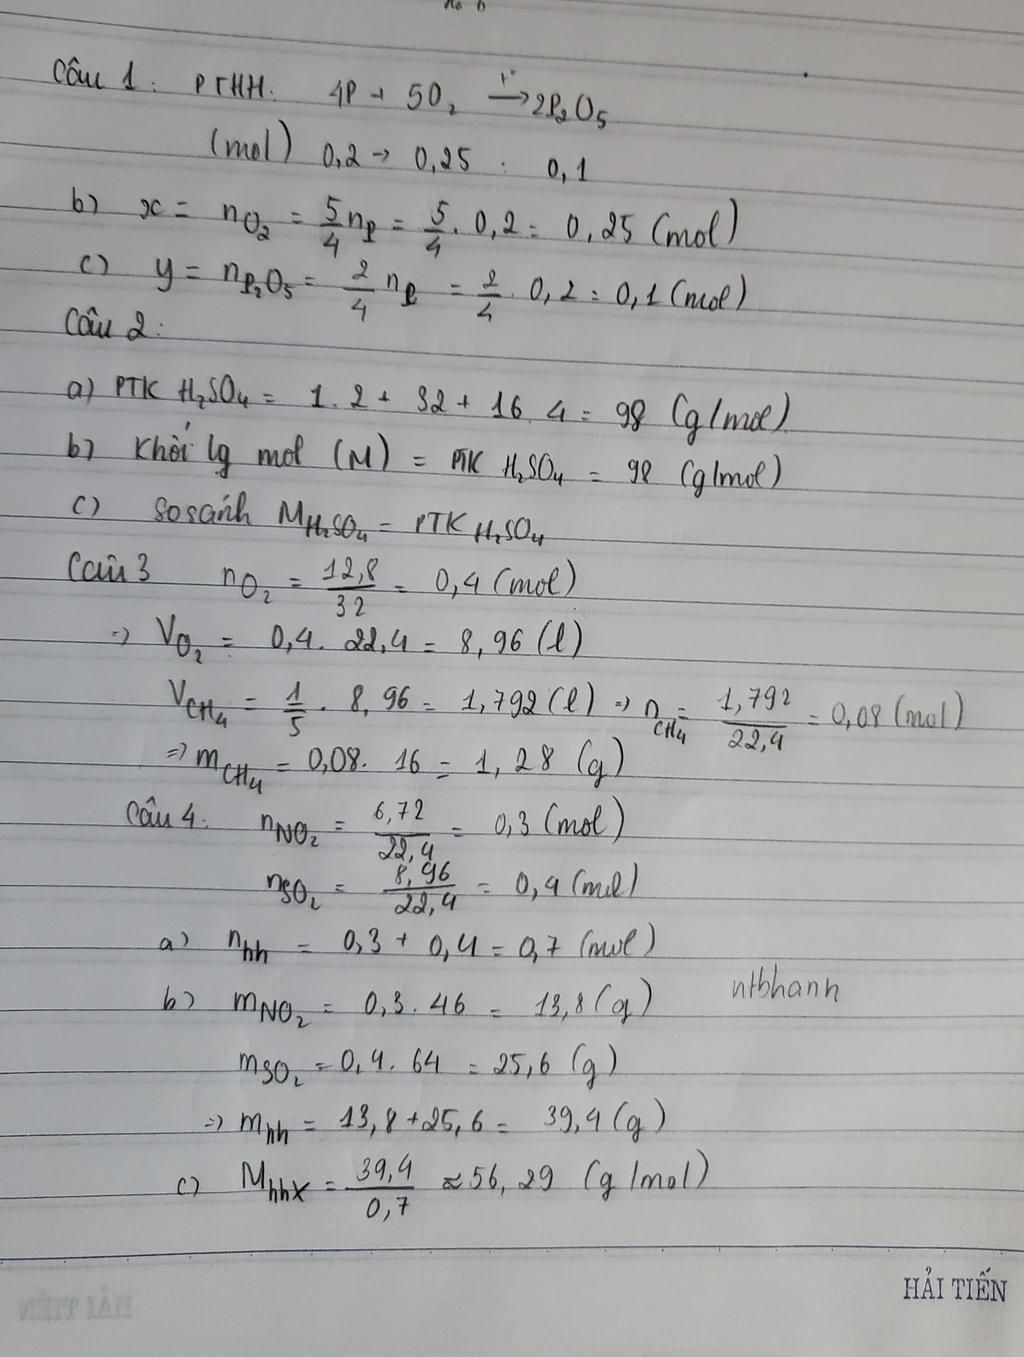 Câu 1: PTHH. 4P + 5O₂ →(t°) 2P₂O₅
(mol) 0,2 → 0,25 : 0,1
b) x = nO₂ = 5/4 nP = 5/4 . 0,2 = 0,25 (mol)
c) y = nP₂O₅ = 2/4 nP = 2/4 . 0,2 = 0,1 (mol)
Câu 2:
a) PTK H₂SO₄ = 1.2 + 32 + 16.4 = 98 (g/mol)
b) Khối lg mol (M) = PTK H₂SO₄ = 98 (g/mol)
c) So sánh M H₂SO₄ = PTK H₂SO₄
Câu 3 nO₂ = 12,8/32 = 0,4 (mol)
=> VO₂ = 0,4 . 22,4 = 8,96 (l)
VCH₄ = 1/5 . 8,96 = 1,792 (l) => nCH₄ = 1,792/22,4 = 0,08 (mol)
=> mCH₄ = 0,08 . 16 = 1,28 (g)
Câu 4: nNO₂ = 6,72/22,4 = 0,3 (mol)
nSO₂ = 8,96/22,4 = 0,4 (mol)
a) nhh = 0,3 + 0,4 = 0,7 (mol)
b) mNO₂ = 0,3 . 46 = 13,8 (g) ntbhanh
mSO₂ = 0,4 . 64 = 25,6 (g)
=> mhh = 13,8 + 25,6 = 39,4 (g)
c) MhhX = 39,4/0,7 ≈ 56,29 (g/mol)
HẢI TIẾN